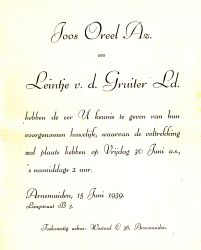 Joos Oreel Az.
en
Leintje v. d. Gruiter Ld.
hebben de eer U kennis te geven van hun
voorgenomen huwelijk, waarvan de voltrekking
zal plaats hebben op Vrijdag 30 Juni a.s.,
's namiddags 2 uur.
Arnemuiden, 15 Juni 1939.
Langstraat B 3.
Toekomstig adres: Westwal C 36, Arnemuiden.